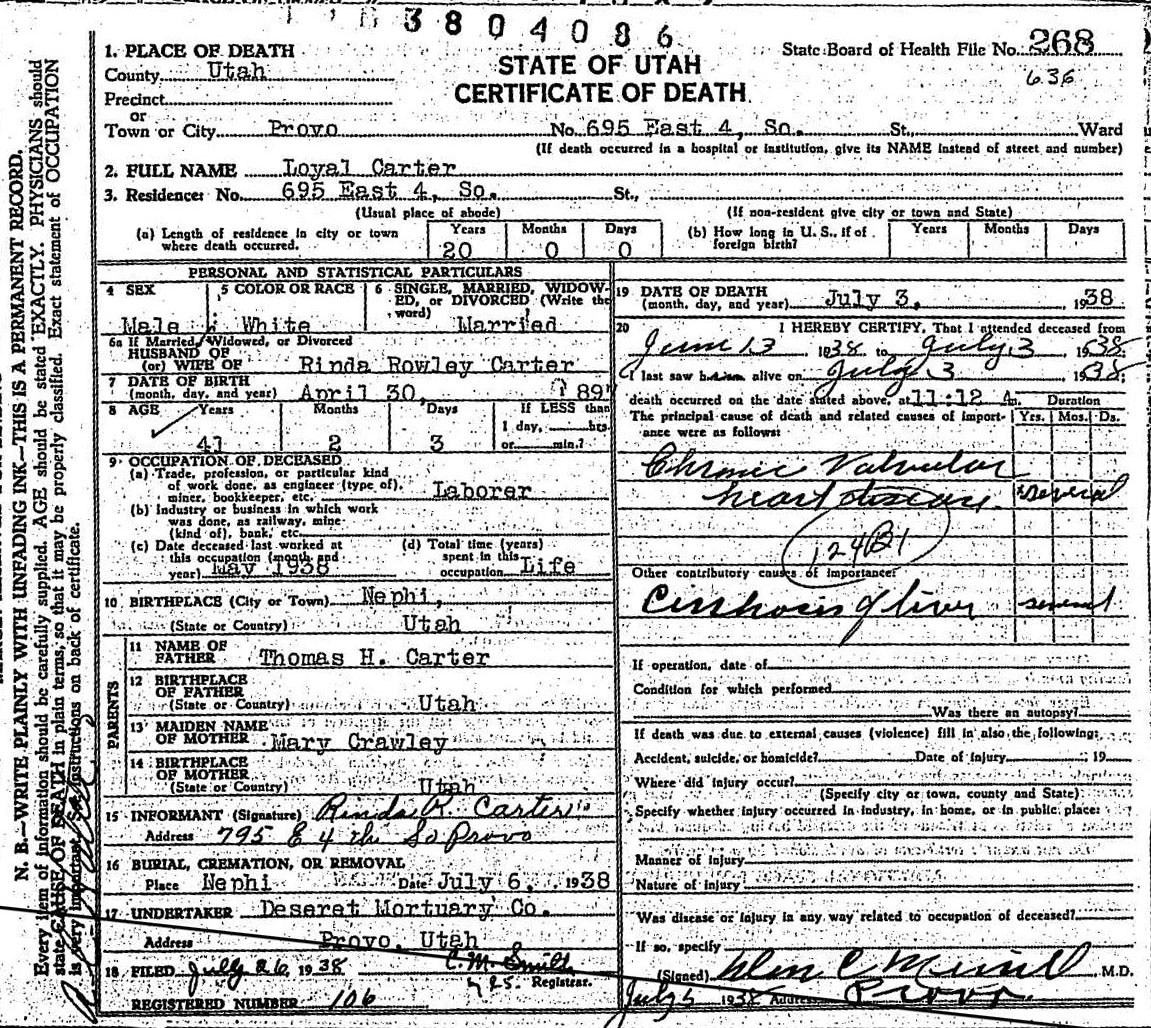 3804086
State Board of Health File No. 268
636
STATE OF UTAH
CERTIFICATE OF DEATH
1. PLACE OF DEATH
County Utah
Precinct
or
Town or City Provo No. 695 East 4, So. St., Ward
(If death occurred in a hospital or institution, give its NAME instead of street and number)
2. FULL NAME Loyal Carter
3. Residence: No. 695 East 4, So. St.,
(Usual place of abode) (If non-resident give city or town and State)
(a) Length of residence in city or town where death occurred. Years 20 Months 0 Days 0
(b) How long in U. S., if of foreign birth? Years Months Days
PERSONAL AND STATISTICAL PARTICULARS
4 SEX Male
5 COLOR OR RACE White
6 SINGLE, MARRIED, WIDOWED, or DIVORCED (Write the word) Married
6a If Married, Widowed, or Divorced
HUSBAND OF
(or) WIFE OF Rinda Rowley Carter
7 DATE OF BIRTH
(month, day, and year) April 30, 189
8 AGE Years 41 Months 2 Days 3 If LESS than 1 day, hrs. or min.?
9 OCCUPATION OF DECEASED
(a) Trade, profession, or particular kind
of work done, as engineer (type of),
miner, bookkeeper, etc. Laborer
(b) Industry or business in which work
was done, as railway, mine
(kind of), bank, etc.
(c) Date deceased last worked at
this occupation (month and
year) May 1938
(d) Total time (years)
spent in this
occupation Life
10 BIRTHPLACE (City or Town) Nephi,
(State or Country) Utah
PARENTS
11 NAME OF
FATHER Thomas H. Carter
12 BIRTHPLACE
OF FATHER
(State or Country) Utah
13 MAIDEN NAME
OF MOTHER Mary Crawley
14 BIRTHPLACE
OF MOTHER
(State or Country) Utah
15 INFORMANT (Signature) Rinda R. Carter
Address 795 E 4 th So Provo
16 BURIAL, CREMATION, OR REMOVAL
Place Nephi Date July 6, 1938
17 UNDERTAKER Deseret Mortuary Co.
Address Provo, Utah
18 FILED July 26, 1938 C. M. Smith
Registrar.
REGISTERED NUMBER 106
19 DATE OF DEATH
(month, day, and year) July 3, 1938
20 I HEREBY CERTIFY, That I attended deceased from
June 13 1938 to July 3 1938;
I last saw him alive on July 3 1938;
death occurred on the date stated above, at 11:12 A m. Duration
The principal cause of death and related causes of importance were as follows: Yrs. Mos. Ds.
Chronic Valvular
heart disease several
Other contributory causes of importance:
Cirrhosis of liver several
If operation, date of
Condition for which performed
Was there an autopsy?
If death was due to external causes (violence) fill in also the following:
Accident, suicide, or homicide? Date of injury 19
Where did injury occur?
(Specify city or town, county and State)
Specify whether injury occurred in industry, in home, or in public place:
Manner of injury
Nature of injury
Was disease or injury in any way related to occupation of deceased?
If so, specify
(Signed) M.D.
July 5 1938 Address Provo
N. B.—WRITE PLAINLY WITH UNFADING INK—THIS IS A PERMANENT RECORD.
Every item of information should be carefully supplied. AGE should be stated EXACTLY. PHYSICIANS should
state CAUSE OF DEATH in plain terms, so that it may be properly classified. Exact statement of OCCUPATION
is very important. See instructions on back of certificate.